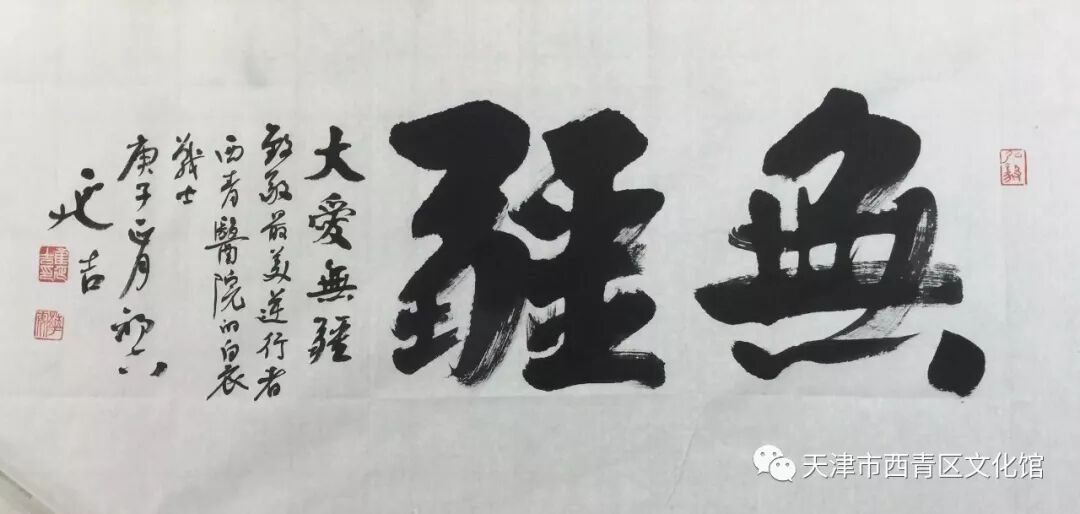 無疆
弘毅
大愛無疆
致敬最美逆行者
西青醫院的白衣
戰士
庚子正月初六
延吉
天津市西青区文化馆